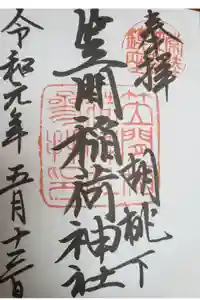 奉拝
胡桃下
笠間稲荷神社
令和元年五月十三日